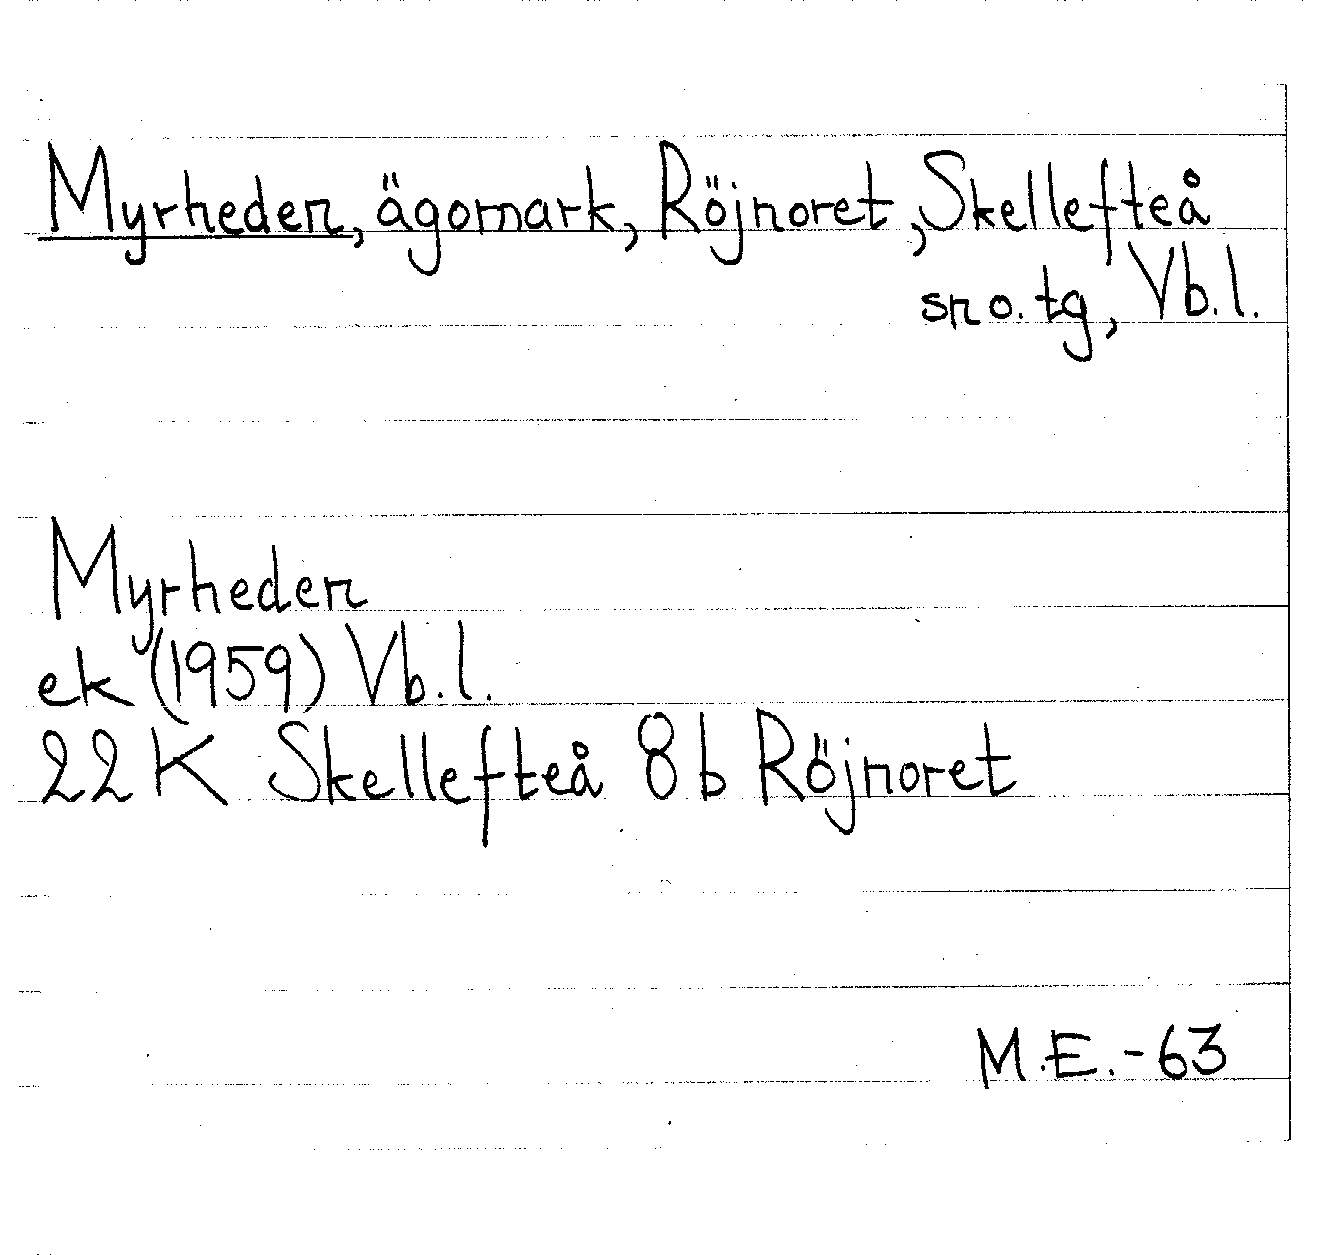 Myrheden, ägomark, Röjnoret, Skellefteå
sn o. tg, Vb.l.
Myrheden
ek (1959) Vb.l.
22 K Skellefteå 8 b Röjnoret
M.E.-63